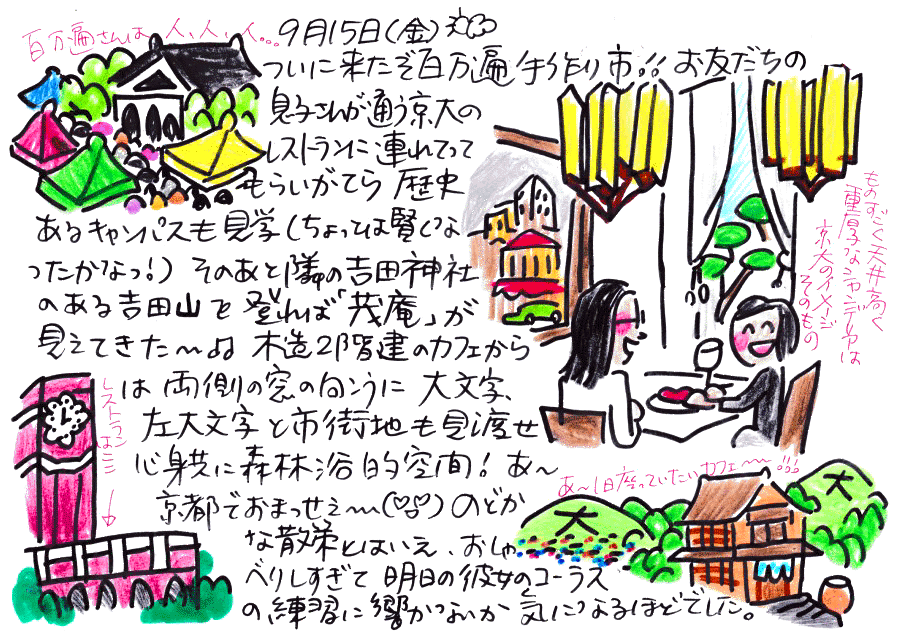 百万遍さんは人、人、人…
9月15日(金)
ついに来たぞ百万遍手作り市!! お友だちの
息子さんが通う京大の
レストランに連れてって
もらいがてら 歴史
あるキャンパスも見学(ちょっとは賢くな
ったかなっ!) そのあと隣の吉田神社
のある吉田山を登れば「茂庵」が
見えてきた〜よ 木造2階建のカフェから
は両側の窓の向うに 大文字、
左大文字と市街地も見渡せ
心身共に森林浴的空間! あ〜
京都でおまっせぇ〜 のどか
な散策とはいえ、おしゃ
べりしすぎて 明日の彼女のコーラス
の練習に響かないか 気になるほどでした。
ものすごく天井高く
重厚なシャンデリアは
京大のイメージ
そのもの
レストランはここ
あ〜1日座っていたいカフェ〜!!!
大
大